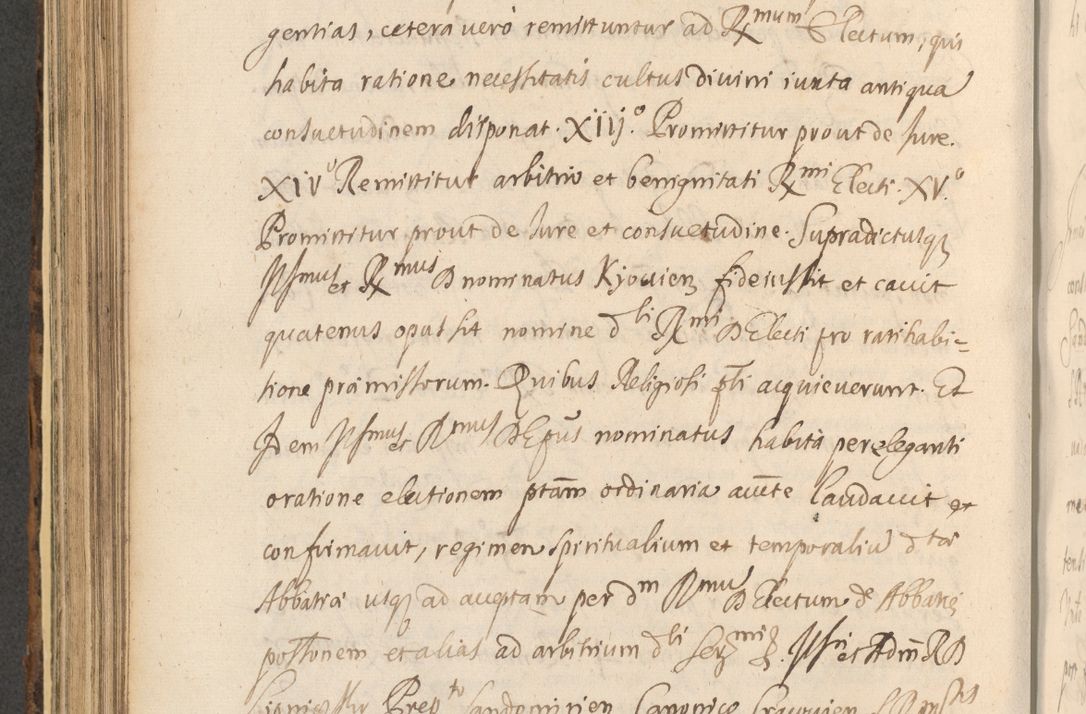 gentias, cetera vero remittuntur ad Rmum Electum, qui
habita ratione necessitatis cultus divini iuxta antiqua
consuetudinem disponat. XIIJ.o Promittitur prout de Jure.
XIVo Remittitur arbitrio et benignitati Rmi Electi. XV.o
Promittitur prout de Jure et consuetudine. Supradictusq
Jllsmus et Rmus D nominatus Kyouien fideiussit et cavit
quatenus opus sit nomine dti Rmi D Electi pro ratihabi=
tione præmissorum. Quibus Religiosi pti acquieverunt. Et
Idem Jllsmus et Rmus D Epus nominatus habita pereleganti
oratione electionem ptam ordinaria aucte laudavit et
confirmavit, regimen spiritualium et temporaliu dtæ
Abbatiæ usq ad acceptam per dm Rmu D Electum d Abbatiæ
possonem et alias ad arbitrium dti Ser mi et Adm R D
Prepto Sandomirien Canonico Cracovien